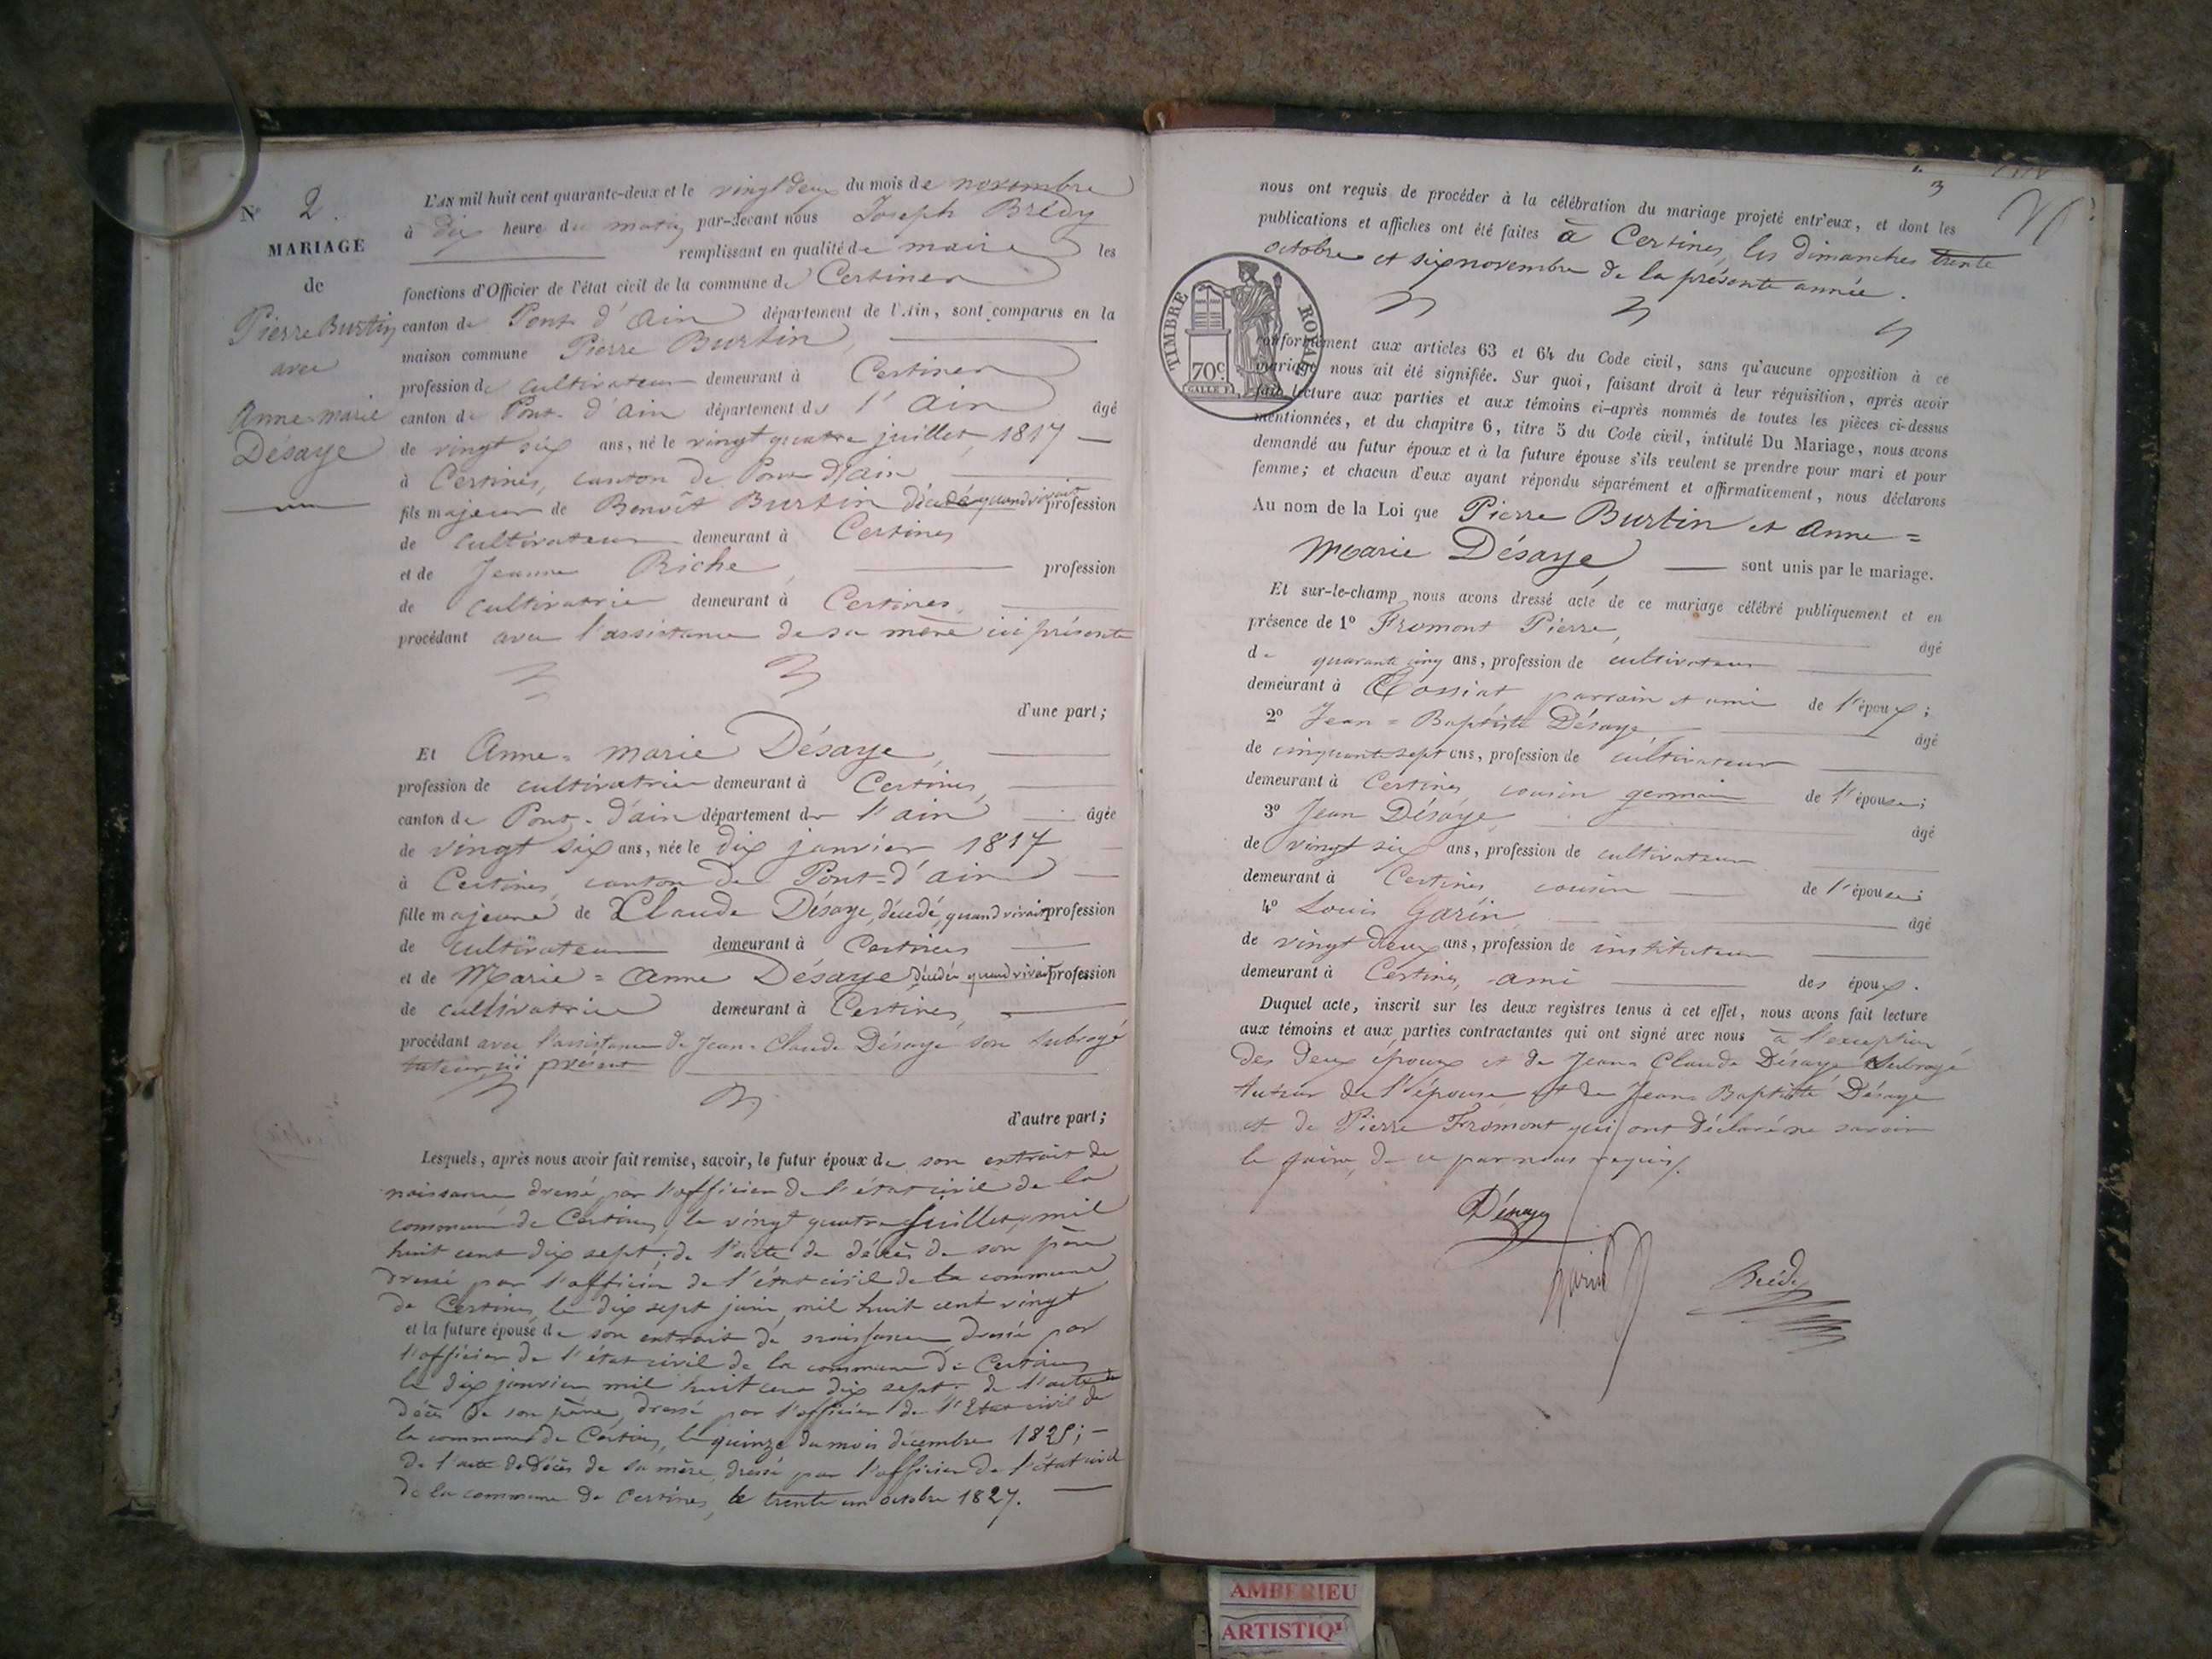 N° 2.
MARIAGE
de
Pierre Burtin
avec
Anne-marie
Désaye
L'AN mil huit cent quarante-deux et le vingt deux du mois de novembre
à dix heure du matin par-devant nous Joseph Brédy
remplissant en qualité de maire les
fonctions d'Officier de l'état civil de la commune de Certines
canton de Pont d'ain département de l'Ain, sont comparus en la
maison commune Pierre Burtin,
profession de cultivateur demeurant à Certines
canton de Pont-d'ain département de l'ain âgé
de vingt six ans, né le vingt quatre juillet 1817
à Certines, canton de Pont-d'ain
fils majeur de Benoît Burtin décédé quand vivait profession
de cultivateur demeurant à Certines
et de Jeanne Riche, profession
de cultivatrice demeurant à Certines,
procédant avec l'assistance de sa mère ici présente
d'une part;
Et Anne-marie Désaye,
profession de cultivatrice demeurant à Certines,
canton de Pont-d'ain département de l'ain âgée
de vingt six ans, née le dix janvier 1817
à Certines canton de Pont-d'ain
fille majeure de Claude Désaye, décédé, quand vivait profession
de cultivateur demeurant à Certines
et de Marie=Anne Désaye décédée quand vivait profession
de cultivatrice demeurant à Certines,
procédant avec l'assistance de Jean-Claude Désaye son subrogé
tuteur, ici présent
d'autre part;
Lesquels, après nous avoir fait remise, savoir, le futur époux de son extrait de
naissance dressé par l'officier de l'état civil de la
commune de Certines, le vingt quatre juillet, mil
huit cent dix sept; de l'acte de décès de son père
dressé par l'officier de l'état civil de la commune
de Certines, le dix sept juin mil huit cent vingt
et la future épouse de son extrait de naissance, dressé par
l'officier de l'état civil de la commune de Certines
le dix janvier mil huit cent dix sept; de l'acte de
décès de son père, dressé par l'officier de l'Etat civil de
la commune de Certines, le quinze du mois décembre
de l'acte de décès de sa mère, dressé par l'officier de l'état civil
de la commune de Certines, le trente un octobre 1827.
3
nous ont requis de procéder à la célébration du mariage projeté entr'eux, et dont les
publications et affiches ont été faites à Certines, les dimanches trente
octobre et six novembre de la présente année.
TIMBRE ROYAL
70c
conformément aux articles 63 et 64 du Code civil, sans qu'aucune opposition à ce
mariage nous ait été signifiée. Sur quoi, faisant droit à leur réquisition, après avoir
fait lecture aux parties et aux témoins ci-après nommés de toutes les pièces ci-dessus
mentionnées, et du chapitre 6, titre 5 du Code civil, intitulé Du Mariage, nous avons
demandé au futur époux et à la future épouse s'ils veulent se prendre pour mari et pour
femme; et chacun d'eux ayant répondu séparément et affirmativement, nous déclarons
Au nom de la Loi que Pierre Burtin et Anne=
Marie Désaye, sont unis par le mariage.
Et sur-le-champ nous avons dressé acte de ce mariage célébré publiquement et en
présence de 1° Fromont Pierre, âgé
de quarante cinq ans, profession de cultivateur
demeurant à Tossiat parrain et ami de l'époux;
2° Jean=Baptiste Désaye âgé
de cinquante sept ans, profession de cultivateur
demeurant à Certines, cousin germain de l'épouse;
3° Jean Désaye, âgé
de vingt six ans, profession de cultivateur
demeurant à Certines cousin de l'épouse;
4° Louis Garin âgé
de vingt deux ans, profession de instituteur
demeurant à Certines, ami des époux.
Duquel acte, inscrit sur les deux registres tenus à cet effet, nous avons fait lecture
aux témoins et aux parties contractantes qui ont signé avec nous à l'exception
des deux époux et de Jean-Claude Désaye subrogé
tuteur de l'épouse et de Jean Baptiste Désaye
et de Pierre Fromont qui ont déclaré ne savoir
le faire, de ce par nous requis.
Désaye
Garin
Brédy
AMBERIEU
ARTISTIQ